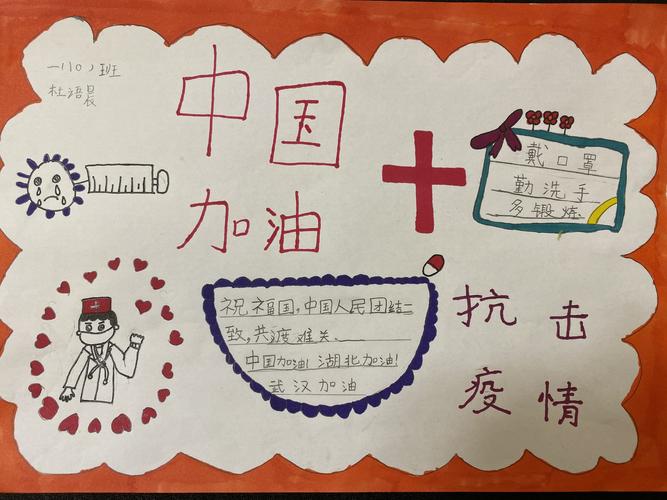 一(10)班
杜语晨
中国
加油
戴口罩
勤洗手
多锻炼
祝福国,中国人民团结一
致,共渡难关、
中国加油!湖北加油!
武汉加油
抗击
疫情